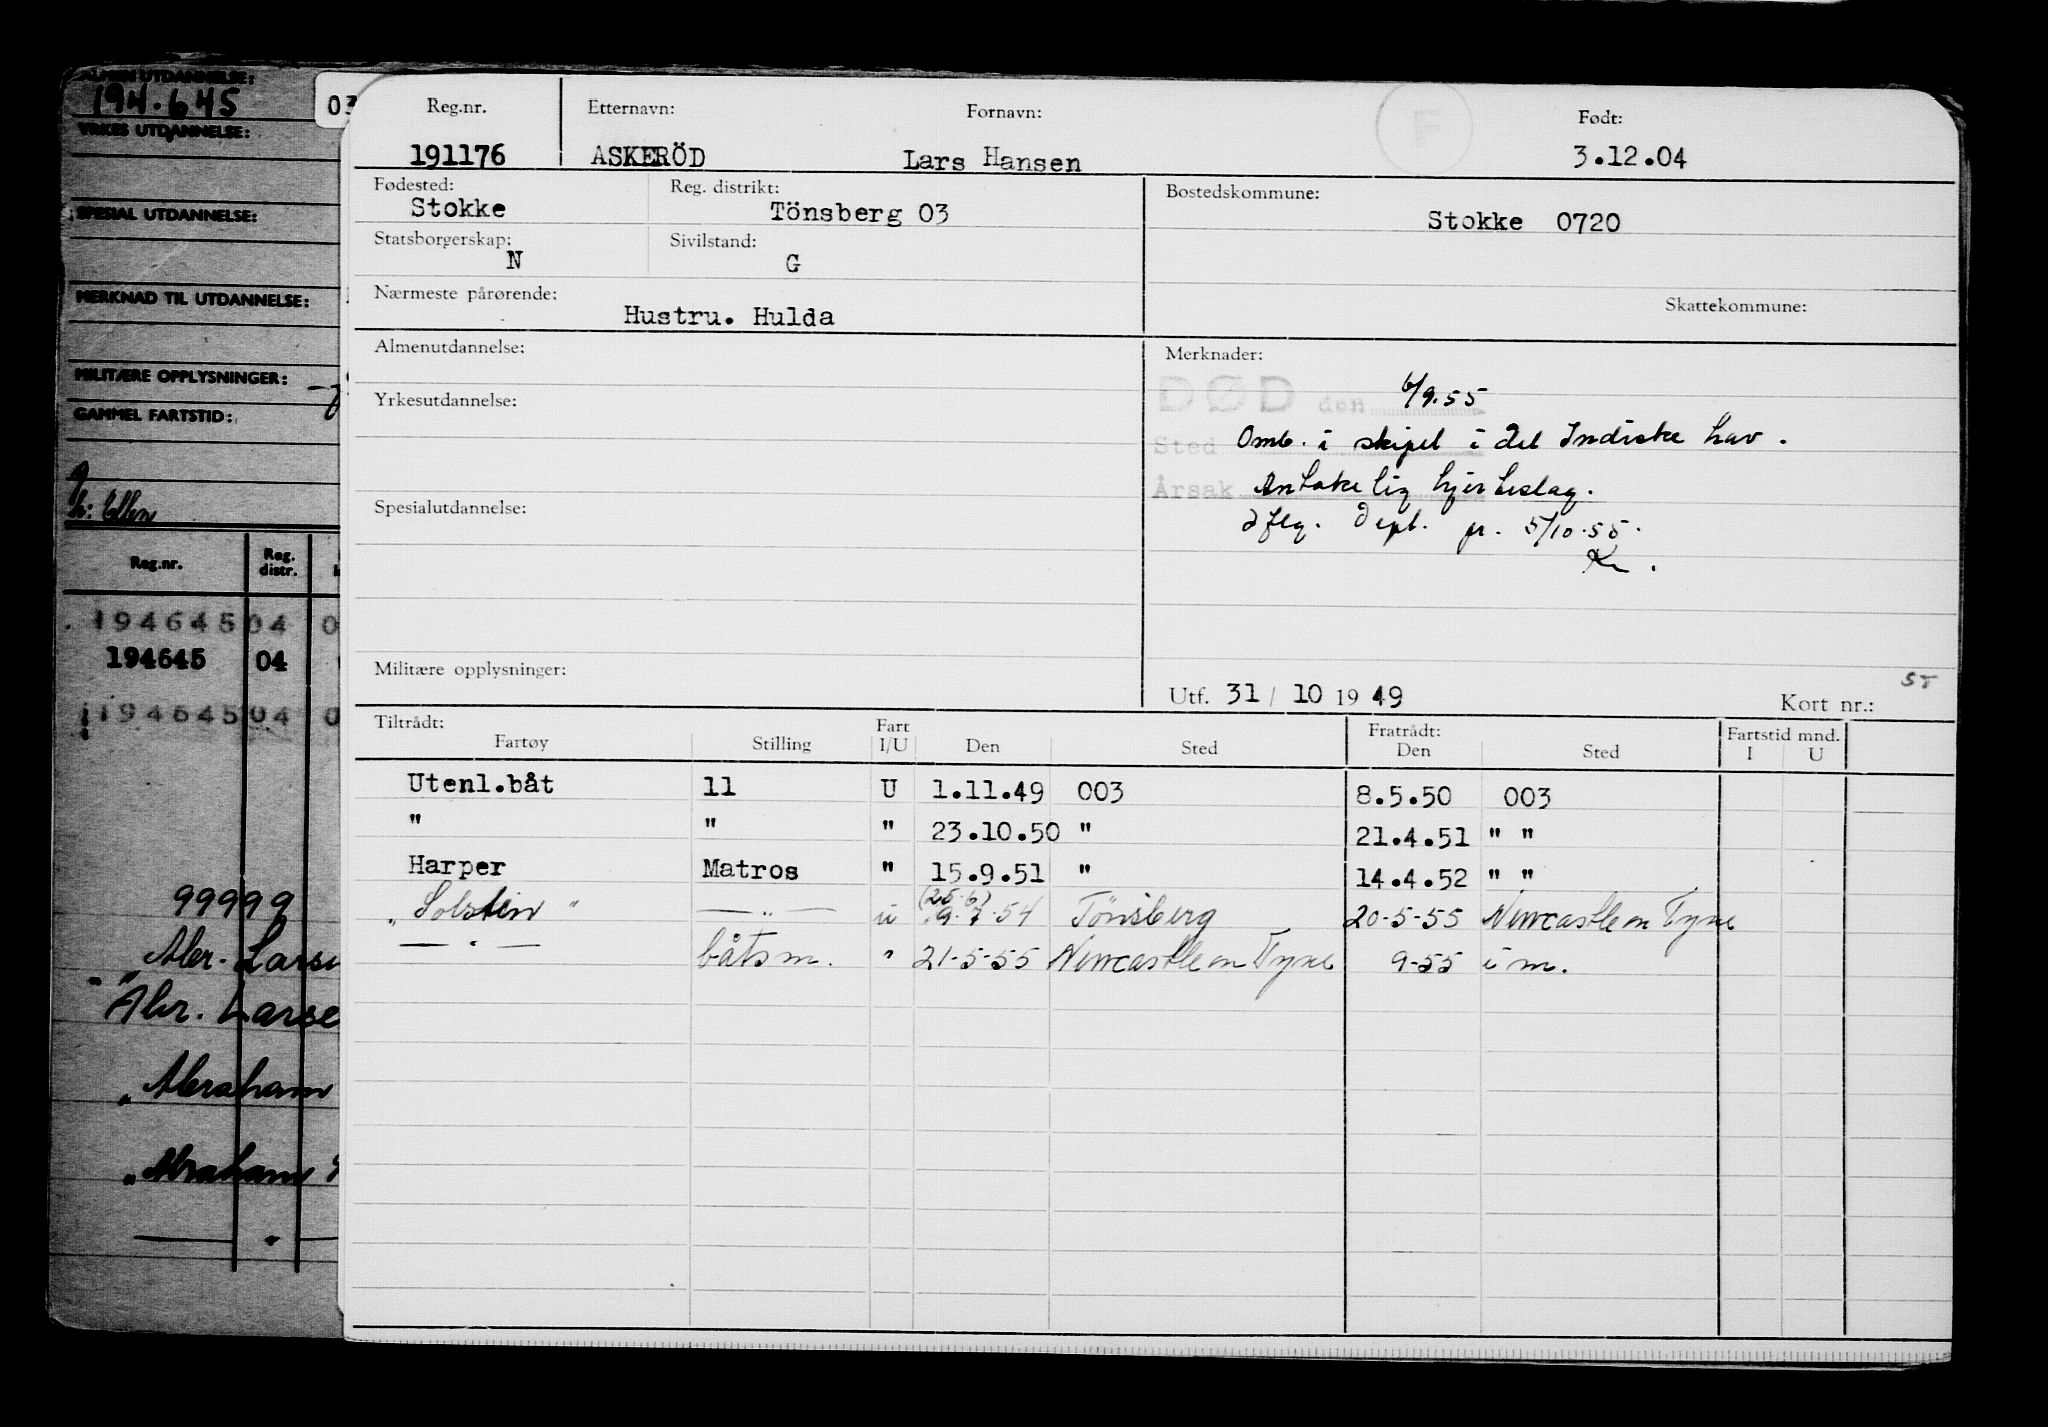 ALMEN UTDANNELSE:
194.645
YRKES UTDANNELSE:
SPESIAL UTDANNELSE:
MERKNAD TIL UTDANNELSE:
MILITÆRE OPPLYSNINGER:
GAMMEL FARTSTID:
g
h: Ellen
Reg.nr. Reg. distr.
194645 04 0
194645 04
194645 04 0
99999
Abr. Larse
Abr. Larse
"Abraham
"Abraham
03
Reg.nr. Etternavn: Fornavn: F Født:
191176 ASKERÖD Lars Hansen 3.12.04
Fødested: Reg. distrikt: Bostedskommune:
Stokke Tönsberg 03 Stokke 0720
Statsborgerskap: Sivilstand:
N G
Nærmeste pårørende: Skattekommune:
Hustru. Hulda
Almenutdannelse: Merknader:
DØD den 6/9.55
Yrkesutdannelse:
Sted Omb. i skipet i det Indiske hav.
Årsak Antakelig hjerteslag.
Spesialutdannelse:
Iflg. Dept. pr. 5/10.55.
Kr.
Militære opplysninger:
Utf. 31 / 10 19 49 Kort nr.: 55
Tiltrådt: Fart Fratrådt: Fartstid mnd.
Fartøy Stilling I/U Den Sted Den Sted I U
Utenl.båt 11 U 1.11.49 003 8.5.50 003
" " " 23.10.50 " 21.4.51 " "
Harper Matros " 15.9.51 " 14.4.52 " "
"Solstin" — " — u (25.6) 9.7.54 Tönsberg 20-5-55 Newcastle on Tyne
— " — båtsm. " 21-5-55 Newcastle on Tyne 9-55 i m.